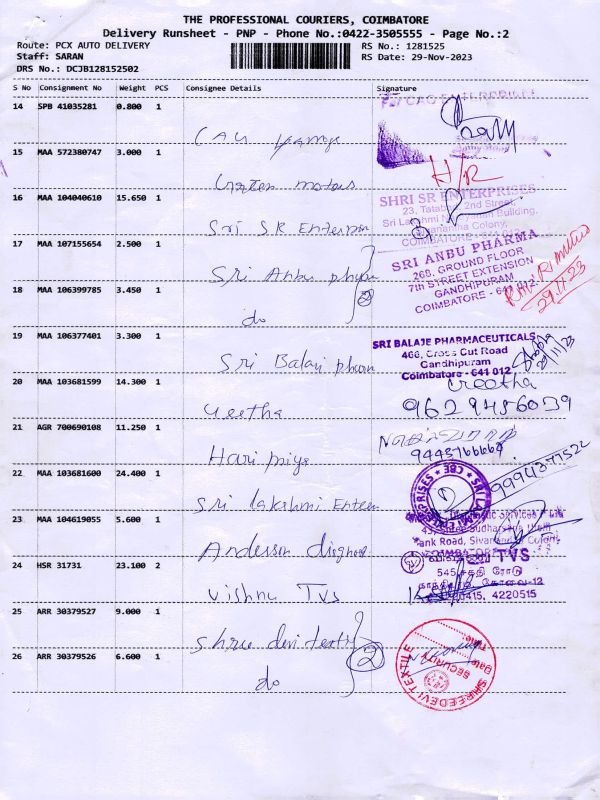 THE PROFESSIONAL COURIERS, COIMBATORE
Delivery Runsheet - PNP - Phone No.:0422-3505555 - Page No.:2
Route: PCX AUTO DELIVERY
RS No.: 1281525
Staff: SARAN
RS Date: 29-Nov-2023
DRS No.: DCJB128152502
S No Consignment No Weight PCS Consignee Details Signature
14 SPB 41035281 0.800 1
For CAG ENTERPRISES
15 MAA 572380747 3.000 1
motors
H/R
16 MAA 104040610 15.650 1
Sri SR Enterprise
SHRI SR ENTERPRISES
23, Tatabad 2nd Street,
Building,
Colony,
COIMBATORE
17 MAA 107155654 2.500 1
Sri Anbu
2
SRI ANBU PHARMA
268, GROUND FLOOR
7th STREET EXTENSION
GANDHIPURAM
COIMBATORE - 641 012.
29.11.23
18 MAA 106399785 3.450 1
do
19 MAA 106377401 3.300 1
Sri Balaji pharm
SRI BALAJE PHARMACEUTICALS
466, Cross Cut Road
Gandhipuram
Coimbatore - 641 012
20 MAA 103681599 14.300 1
Geetha
Geetha
9629456039
21 AGR 700690108 11.250 1
Hari priya
22 MAA 103681600 24.400 1
Sri Lakshmi Enter
SRI LAKSHMI ENTERPRISES * CBE *
23 MAA 104619055 5.600 1
Anderson diagnos
24 HSR 31731 23.100 2
Vishnu TVS
TVS
545,
0415, 4220515
25 ARR 30379527 9.000 1
Shree devi textile
2
SHREEDEVI TEXTILE
SECURITY
Date:
Time:
26 ARR 30379526 6.600 1
do